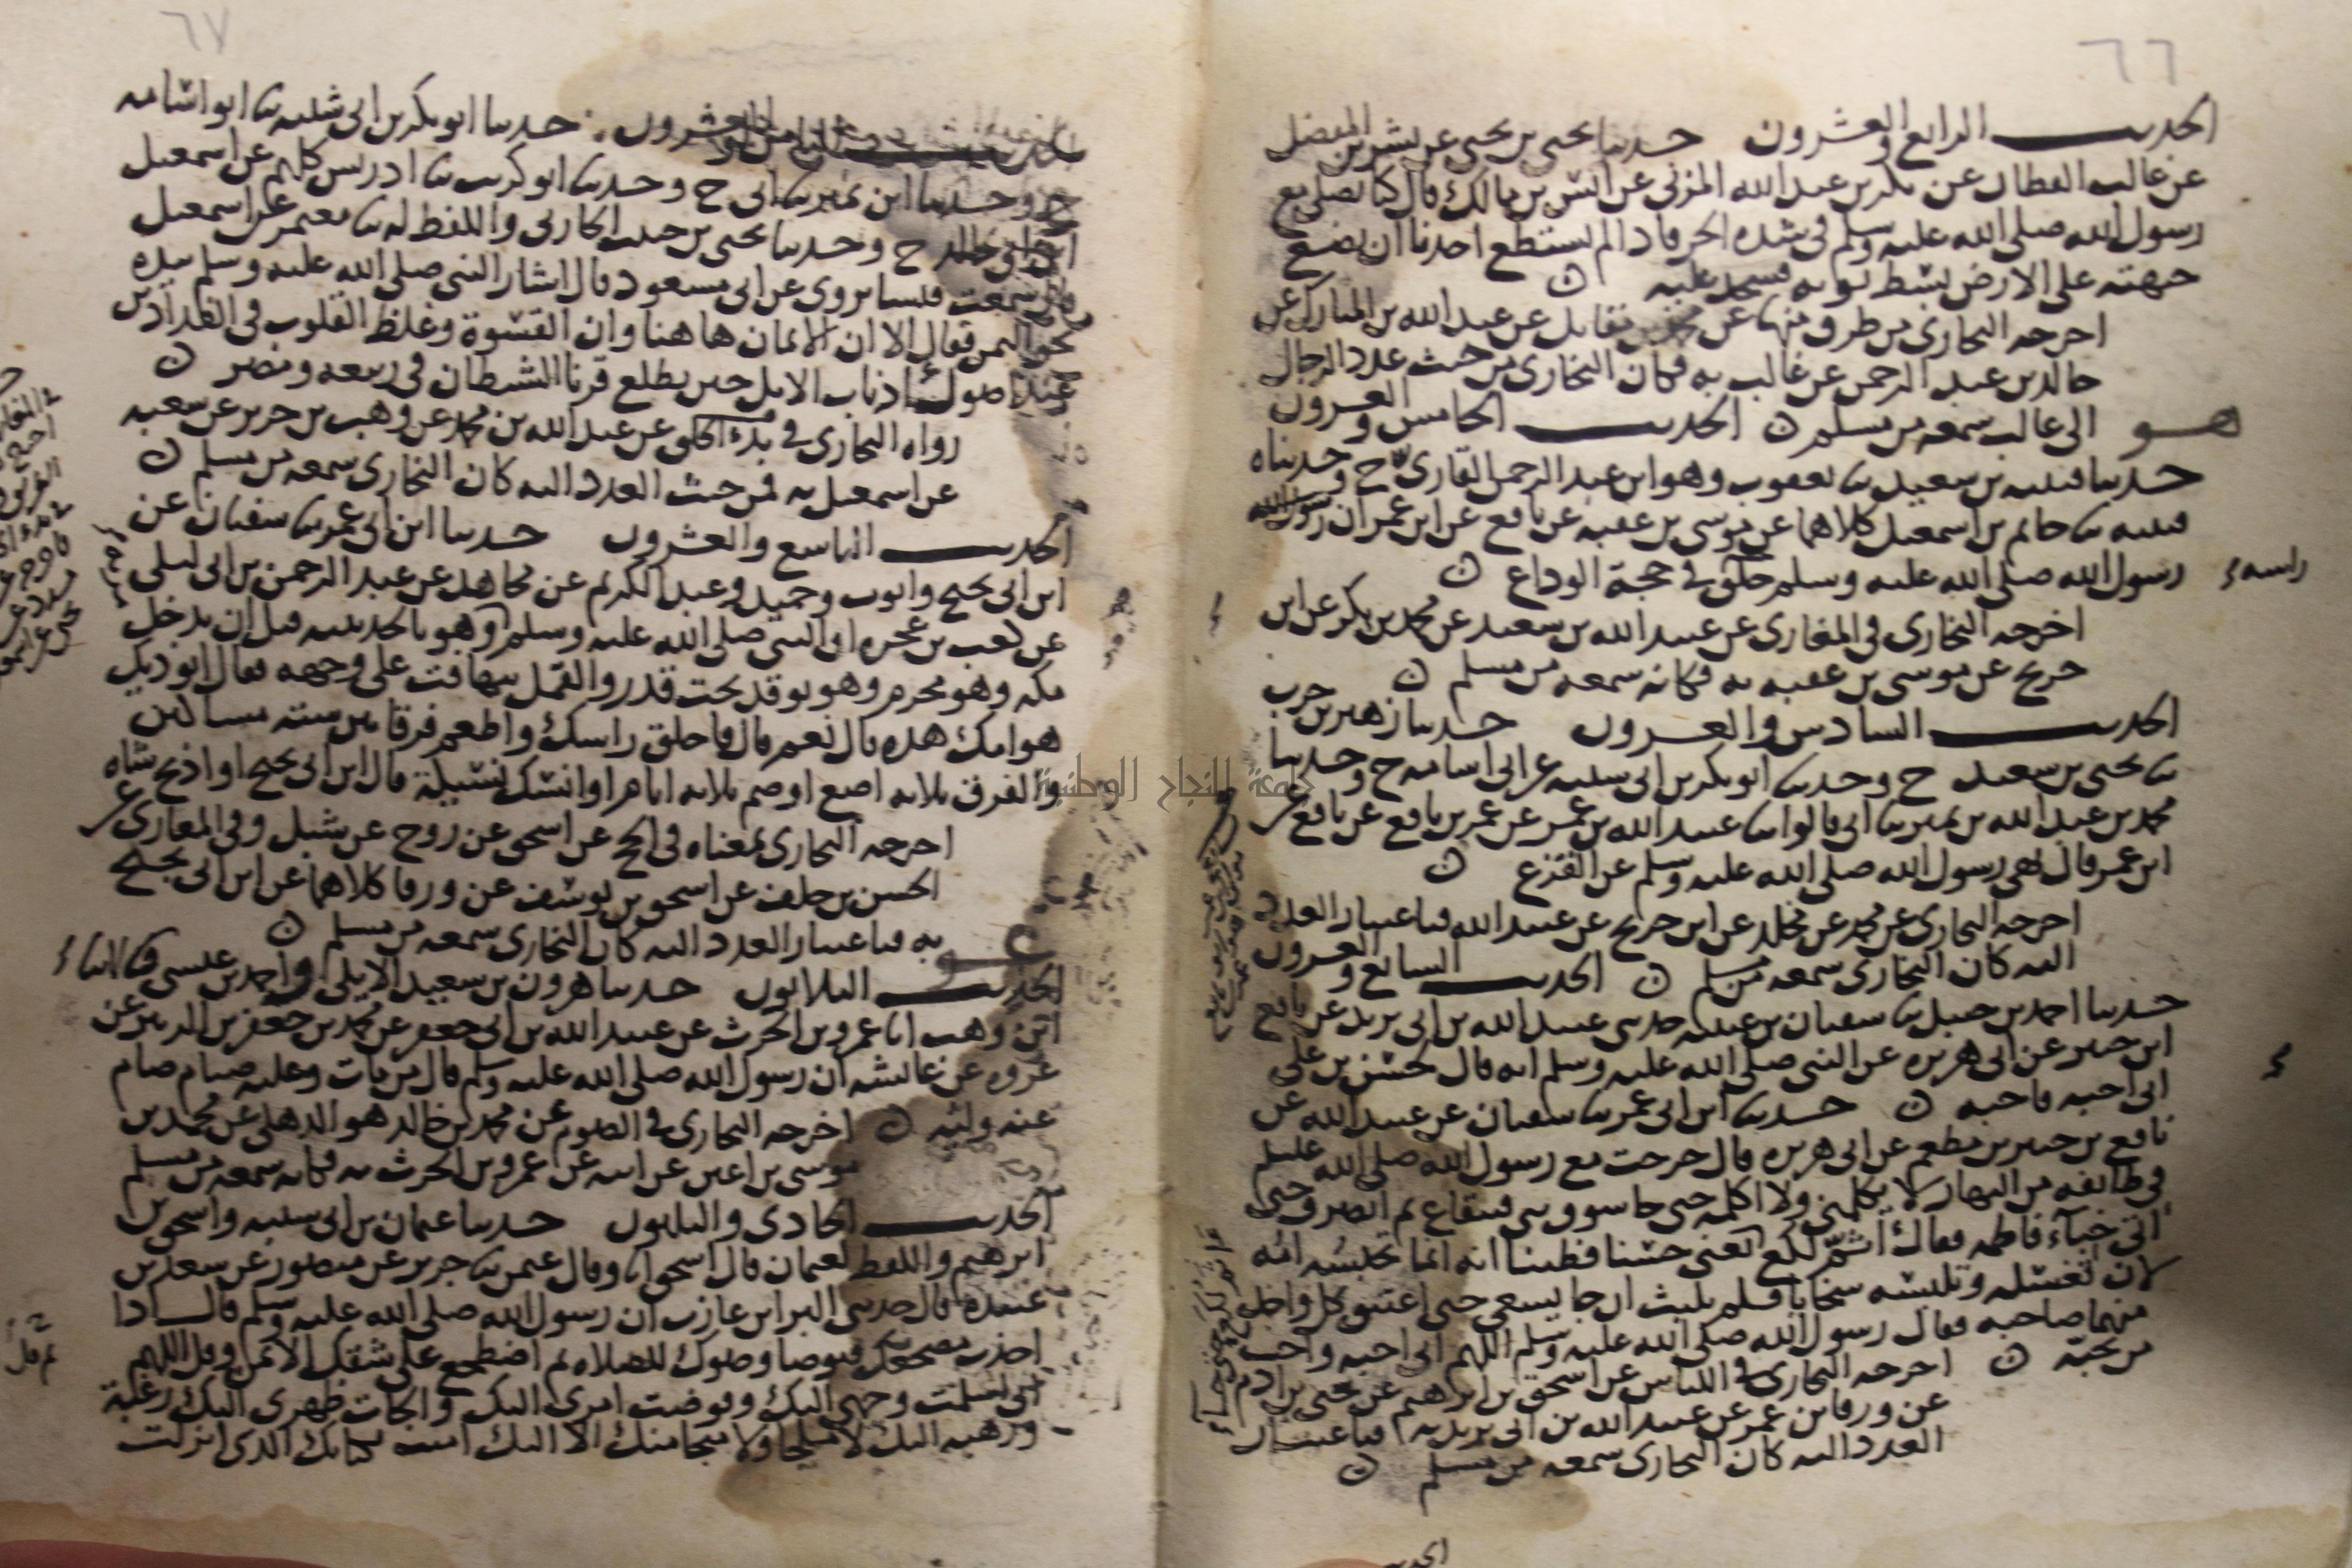 ٦٦
الحديث الرابع والعشرون حدثنا يحيى بن يحيى عن بشر بن المفضل
عن غالب القطان عن بكر بن عبد الله المزني عن انس بن مالك قال كنا نصلي مع
رسول الله صلى الله عليه وسلم في شدة الحر فاذا لم يستطع احدنا ان يضع
جبهته على الارض بسط ثوبه فسجد عليه
اخرجه البخاري من طرق منها عن محمد بن مقاتل عن عبد الله بن المبارك عن
خالد بن عبد الرحمن عن غالب به فكان البخاري من حيث عدد الرجال
هو الى غالب سمعه من مسلم الحديث الخامس والعشرون
حدثنا قتيبة بن سعيد ثنا يعقوب وهو ابن عبد الرحمن القاري ح وحدثناه
قتيبة ثنا حاتم بن اسمعيل كلاهما عن موسى بن عقبة عن نافع عن ابن عمر ان رسول الله
رسول الله صلى الله عليه وسلم حلق في حجة الوداع
راسه
اخرجه البخاري في المغازي عن عبيد الله بن سعيد عن محمد بن بكر عن ابن
جريج عن موسى بن عقبة به فكانه سمعه من مسلم
الحديث السادس والعشرون حدثنا زهير بن حرب
ثنا يحيى بن سعيد ح وحدثنا ابو بكر بن ابي شيبة عن ابي اسامة ح وحدثنا
محمد بن عبد الله بن نمير ثنا ابي قالوا ثنا عبيد الله بن عمر عن عمر بن نافع عن نافع عن
ابن عمر قال نهى رسول الله صلى الله عليه وسلم عن القزع
اخرجه البخاري عن محمد عن مخلد عن ابن جريج عن عبيد الله فباعتبار العدد
اليه كان البخاري سمعه من مسلم الحديث السابع والعشرون
حدثنا احمد بن حنبل ثنا سفيان بن عيينة حدثني عبيد الله بن ابي يزيد عن نافع
ابن جبير عن ابي هريرة عن النبي صلى الله عليه وسلم انه قال لحسن بن علي
اني احبه فاحبه حدثنا ابن ابي عمر ثنا سفيان عن عبيد الله عن
نافع بن جبير بن مطعم عن ابي هريرة قال خرجت مع رسول الله صلى الله عليه وسلم
في طائفة من النهار لا يكلمني ولا اكلمه حتى جا سوق بني قينقاع ثم انصرف حتى
اتى خباء فاطمة فقال اثم لكع يعني حسنا فظننا انه انما تحبسه امه
لان تغسله وتلبسه سخابا فلم يلبث ان جا يسعى حتى اعتنق كل واحد
منهما صاحبه فقال رسول الله صلى الله عليه وسلم اللهم اني احبه واحب
من يحبه اخرجه البخاري في اللباس عن اسحق بن ابرهيم عن يحيى بن ادم
عن ورقا بن عمر عن عبيد الله بن ابي يزيد به فباعتبار
العدد اليه كان البخاري سمعه من مسلم
الحديث
٦٧
الحديث الثامن والعشرون حدثنا ابو بكر بن ابي شيبة ثنا ابو اسامة
ح وحدثنا ابن نمير ثنا ابي ح وحدثنا ابو كريب ثنا ادريس كلهم عن اسمعيل
ابن ابي خالد ح وحدثنا يحيى بن حبيب الحارثي واللفظ له ثنا معتمر عن اسمعيل
قال سمعت قيسا يروي عن ابي مسعود قال اشار النبي صلى الله عليه وسلم بيده
نحو اليمن فقال الا ان الايمان هاهنا وان القسوة وغلظ القلوب في الفدادين
عند اصول اذناب الابل حيث يطلع قرنا الشيطان في ربيعة ومضر
رواه البخاري في بدء الخلق عن عبد الله بن محمد عن وهب بن جرير عن شعبة
عن اسمعيل به فمن حيث العدد اليه كان البخاري سمعه من مسلم
الحديث التاسع والعشرون حدثنا ابن ابي عمر ثنا سفيان عن
ابن ابي نجيح وايوب وحميد وعبد الكريم عن مجاهد عن عبد الرحمن بن ابي ليلى
عن كعب بن عجرة ان النبي صلى الله عليه وسلم مر وهو بالحديبية قبل ان يدخل
مكة وهو محرم وهو يوقد تحت قدر والقمل يتهافت على وجهه فقال ايوذيك
هوامك هذه قال نعم قال فاحلق راسك واطعم فرقا بين ستة مساكين
والفرق ثلاثة اصع او صم ثلاثة ايام او انسك نسيكة قال ابن ابي نجيح او اذبح شاة
اخرجه البخاري بمعناه في الحج عن اسحق عن روح عن شبل وفي المغازي عن
الحسن بن خلف عن اسحق بن يوسف عن ورقا كلاهما عن ابن ابي نجيح
به فباعتبار العدد اليه كان البخاري سمعه من مسلم
الحديث الثلاثون حدثنا هرون بن سعيد الايلي واحمد بن عيسى قالا ثنا
ابن وهب انا عمرو بن الحرث عن عبيد الله بن ابي جعفر عن محمد بن جعفر بن الزبير عن
عروة عن عائشة ان رسول الله صلى الله عليه وسلم قال من مات وعليه صيام صام
عنه وليه اخرجه البخاري في الصوم عن محمد بن خالد هو الذهلي عن محمد بن
موسى بن اعين عن ابيه عن عمرو بن الحرث به فكانه سمعه من مسلم
الحديث الحادي والثلاثون حدثنا عثمان بن ابي شيبة واسحق بن
ابرهيم واللفظ لعثمان قال اسحق انا وقال عثمن ثنا جرير عن منصور عن سعد بن
عبيدة قال حدثني البرا بن عازب ان رسول الله صلى الله عليه وسلم قال اذا
اخذت مضجعك فتوضا وضوك للصلاة ثم اضطجع على شقك الايمن وقل اللهم
اني اسلمت وجهي اليك وفوضت امري اليك والجات ظهري اليك رغبة
ورهبة اليك لا ملجا ولا منجا منك الا اليك امنت بكتابك الذي انزلت
ثم قل
جامعة النجاح الوطنية